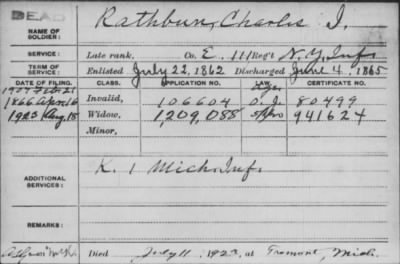 DEAD
NAME OF SOLDIER: Rathbun, Charles I.
SERVICE: Late rank, Co. E, 111 Reg't N.Y. Inf.
TERM OF SERVICE: Enlisted July 22, 1862 Discharged June 4, 1865
DATE OF FILING. CLASS. APPLICATION NO. CERTIFICATE NO.
1907 Feb 21
1866 Apr 16 Invalid, 106604 80499
1923 Aug 18 Widow, 1,209,088 941624
Minor,
ADDITIONAL SERVICES: K. 1 Mich. Inf.
REMARKS:
Died July 11, 1923, at Fremont, Mich.